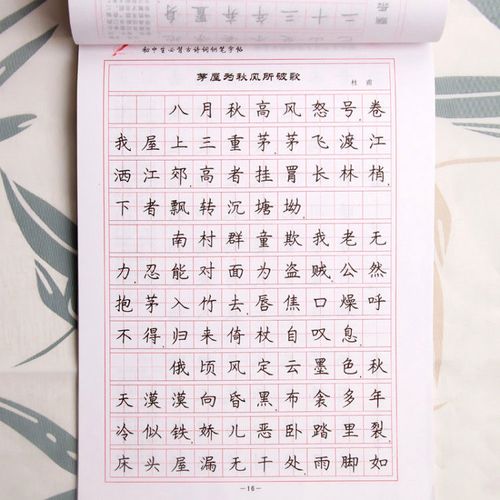 二十三年弃置身
初中生必背古诗词钢笔字帖
茅屋为秋风所破歌
杜甫
八月秋高风怒号,卷
我屋上三重茅,茅飞渡江
洒江郊,高者挂罥长林梢,
下者飘转沉塘坳.
南村群童欺我老无
力,忍能对面为盗贼,公然
抱茅入竹去,唇焦口燥呼
不得,归来倚杖自叹息.
俄顷风定云墨色,秋
天漠漠向昏黑,布衾多年
冷似铁,娇儿恶卧踏里裂,
床头屋漏无干处,雨脚如
-16-